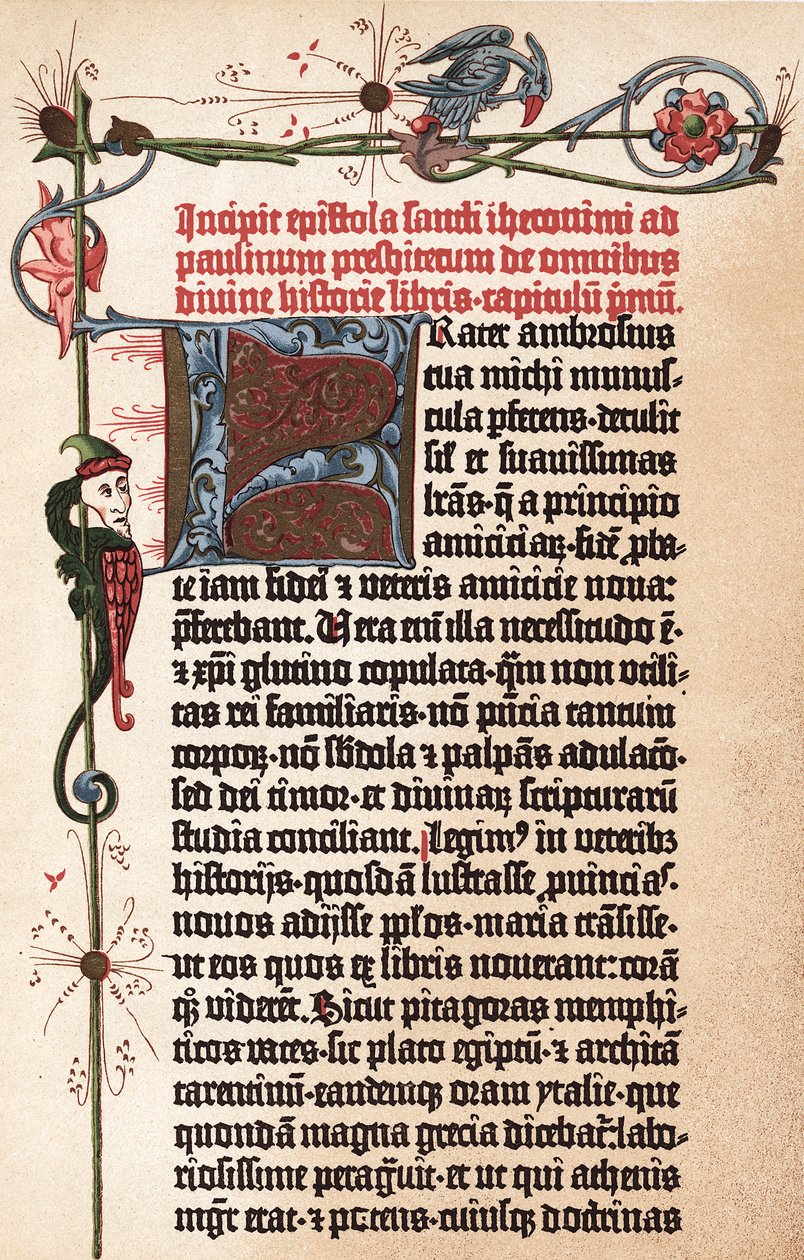 Incipit epistola sancti iheronimi ad
paulinum presbiterum de omnibus
divine historie libris·capitulū pͥmū.
FRater ambrosius
tua michi munus⸗
cula ꝑferens·detulit
sil̄ et suavissimas
lr̄as·q̄ a principio
amiciciaꝝ·fidē ꝓba⸗
te iam fidei ⁊ veteris amicicie nova:
p̄ferebant. Vera enī illa necessitudo ē·
⁊ xp̄i glutino copulata·q̄m non utili⸗
tas rei familiaris·nō pn̄cia tantum
corpoꝝ·nō sb̄dola ⁊ palpās adulacō·
sed dei timor·et divinaꝝ scripturarū
studia conciliant. Legimꝰ in veteribꝫ
historijs·quosdā lustrasse ꝓvincias·
novos adijsse ppl̄os·maria trāsisse·
ut eos quos ex libris noverant: corā
qꝫ viderēt. Sicut pitagoras memphi⸗
ticos vates·sic plato egiptū·⁊ architā
tarentinū·eandemqꝫ oram ytalie·que
quondā magna grecia dicebat᷑: labo⸗
riosissime peragͣvit·et ut qui athenis
mgr̄ erat·⁊ potens·cuiusqꝫ doctrinas